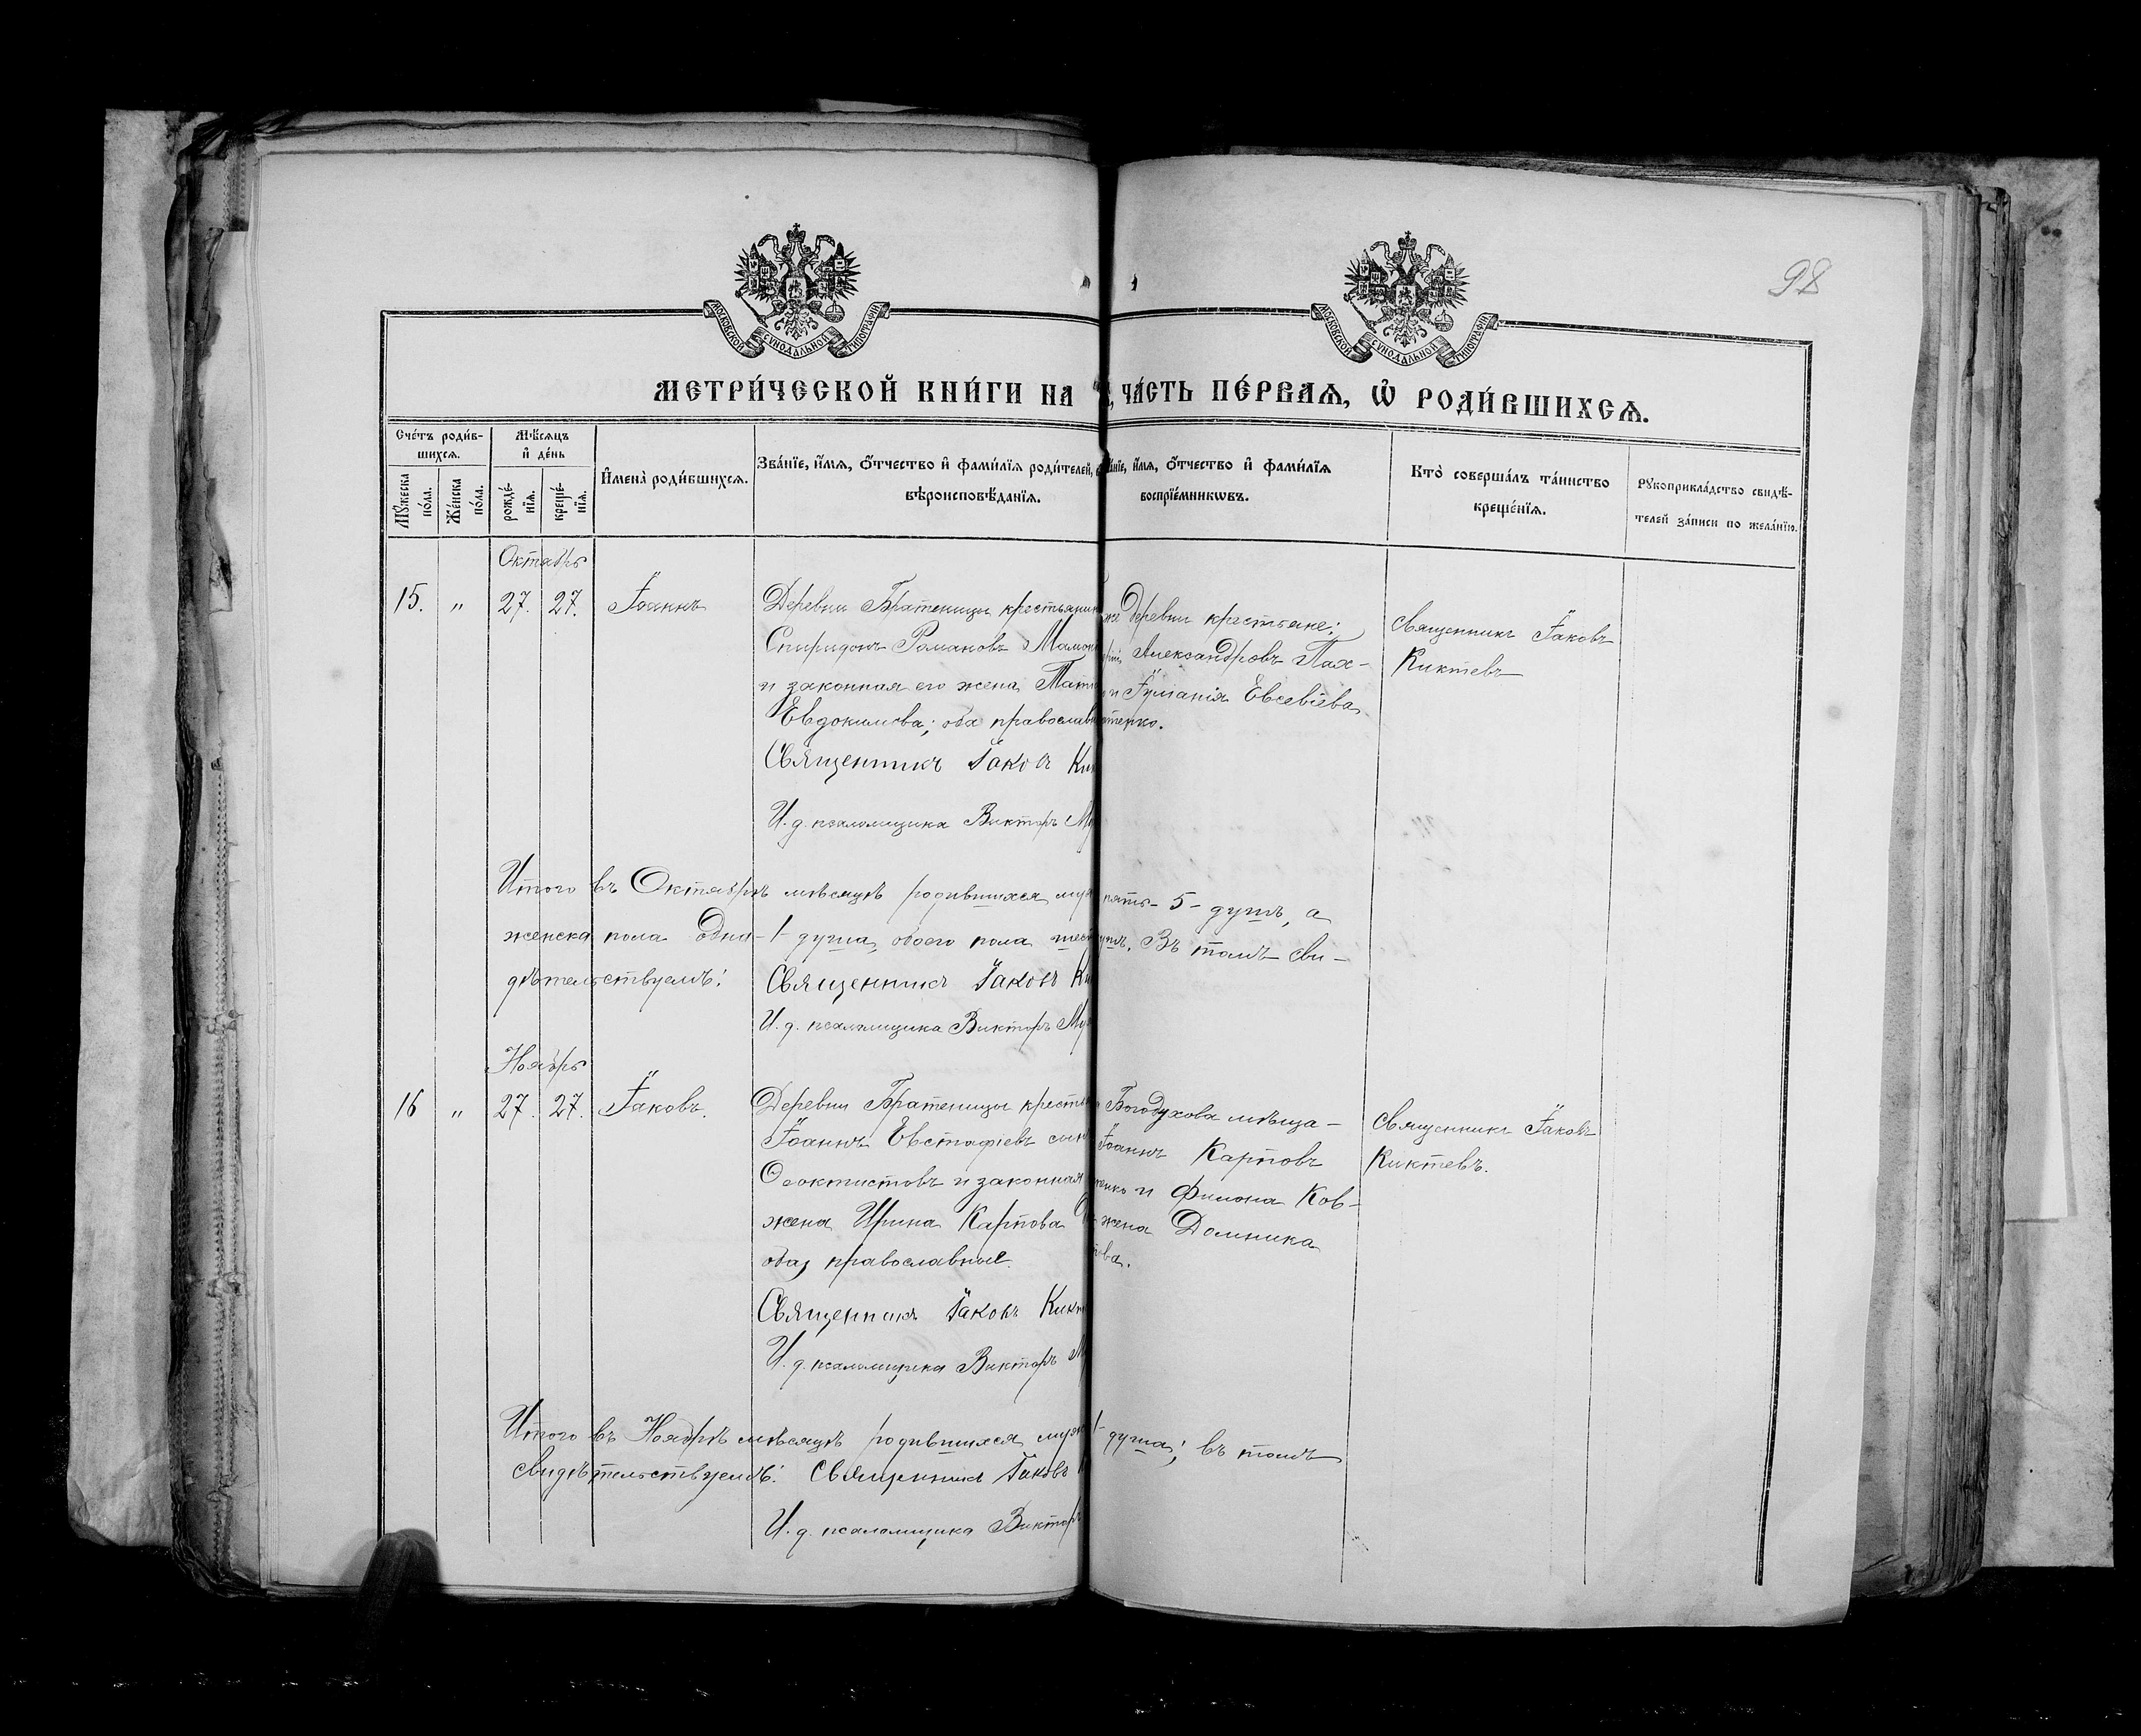 98
МОСКОВСКОЙ СѴНОДАЛЬНОЙ ТИПОГРАФІИ
МОСКОВСКОЙ СѴНОДАЛЬНОЙ ТИПОГРАФІИ
МЕТРИ́ЧЕСКОЙ КНИ́ГИ НА ЧА́СТЬ ПЕ́РВАѦ, Ѽ РОДИ́ВШИХСѦ.
Сче́тъ роди́в-
шихсѧ.
Мꙋ́жеска по́ла.
Же́нска по́ла.
Мѣ́сѧцъ
и҆ де́нь
рожде́-
нїѧ.
креще́-
нїѧ.
И҆мена̀ роди́вшихсѧ.
Зва́нїе, и҆́мѧ, ѻ҆́тчество и҆ фами́лїѧ роди́телей,
вѣроисповѣ́данїѧ.
и҆́мѧ, ѻ҆́тчество и҆ фами́лїѧ
воспрїе́мникѡвъ.
Кто̀ соверша́лъ та́инство
креще́нїѧ.
Рꙋкоприкла́дство свидѣ́-
телей за́писи по жела́нїю.
Октябрь
15. " 27. 27. Іоаннъ
Деревни Братеницы крестьянинъ
Спиридонъ Романовъ
и законная его жена
Евдокимова; оба
Священникъ Іаковъ
И. д. псаломщика Викторъ
деревни крестьяне;
Александровъ Пах-
и Іуліанія Евсевіева
Священникъ Іаковъ
Киктевъ
Итого въ Октябрѣ мѣсяцѣ родившихся пять - 5 - душъ, а
женска пола одна - 1 - душа, обоего пола Въ томъ сви-
дѣтельствуемъ:
Священникъ Іаковъ
И. д. псаломщика Викторъ
Ноябрь
16 " 27. 27. Іаковъ.
Деревни Братеницы
Іоаннъ Евстафіевъ сынъ
Ѳеоктистовъ и законная
жена Ирина Карпова
оба православные.
Священникъ Іаковъ
И. д. псаломщика Викторъ
Богодухова мѣща-
Іоаннъ Карповъ
и Филона Ков-
жена Домника
Священникъ Іаковъ
Киктевъ.
Итого въ Ноябрѣ мѣсяцѣ родившихся 1- душа; въ томъ
свидѣтельствуемъ: Священникъ Іаковъ
И. д. псаломщика Викторъ